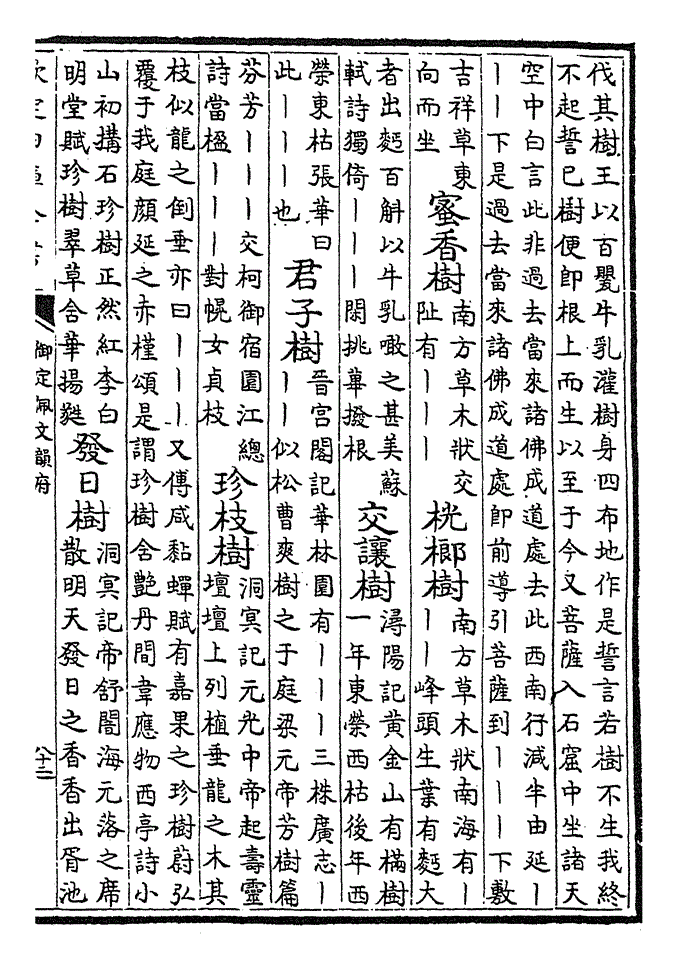 伐其樹王以百甖牛乳灌樹身四布地作是誓言若樹不生我終
不起誓已樹便即根上而生以至于今又菩薩入石窟中坐諸天
空中白言此非過去當來諸佛成道處去此西南行減半由延丨
丨丨下是過去當來諸佛成道處即前導引菩薩到丨丨丨下敷
吉祥草東
向而坐
蜜香樹
南方草木狀交
阯有丨丨丨
桄榔樹
南方草木狀南海有丨
丨丨峰頭生葉有麪大
者出麪百斛以牛乳噉之甚美蘇
軾詩獨倚丨丨丨閑挑蓽撥根
交讓樹
潯陽記黃金山有樠樹
一年東榮西枯後年西
榮東枯張華曰
此丨丨丨也
君子樹
晉宮閣記華林園有丨丨丨三株廣志丨
丨丨似松曹爽樹之于庭梁元帝芳樹篇
芬芳丨丨丨交柯御宿園江總
詩當楹丨丨丨對幌女貞枝
珍枝樹
洞冥記元光中帝起壽靈
壇壇上列植垂龍之木其
枝似龍之倒垂亦曰丨丨丨又傅咸黏蟬賦有嘉果之珍樹蔚弘
覆于我庭顏延之赤槿頌是謂珍樹含艷丹間韋應物西亭詩小
山初搆石珍樹正然紅李白
明堂賦珍樹翠草含華揚蕤
發日樹
洞冥記帝舒闇海元落之席
散明天發日之香香出胥池
欽定四庫全書
御定佩文韻府
八十三